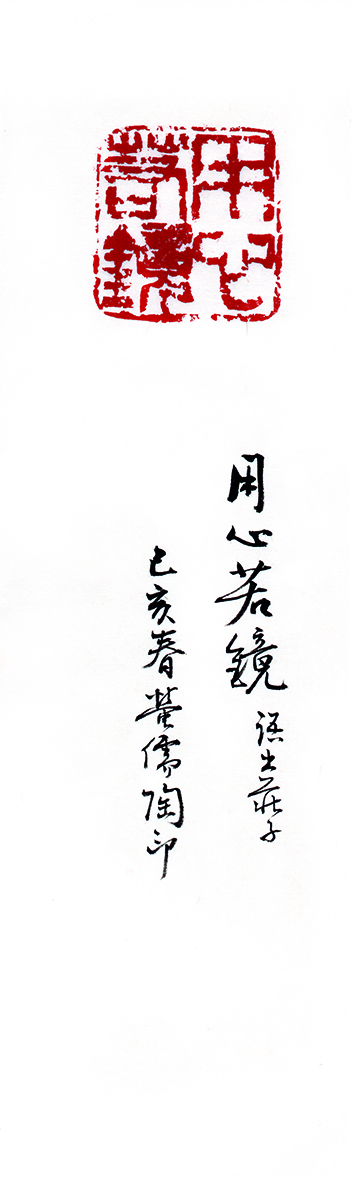 用心若鏡
用心若鏡 語出莊子
己亥春 螢儒陶印